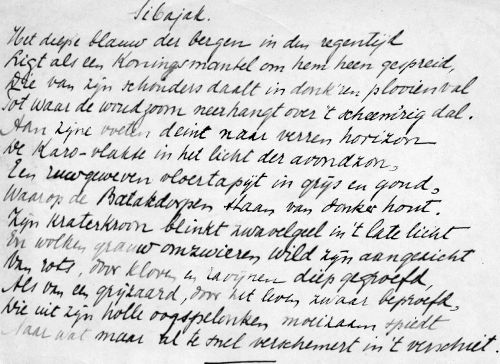 Sibajak.
Het diepe blauw der bergen in den regentijd
Ligt als een Koningsmantel om hem heen gespreid,
Die van zijn schouders daalt in donk'ren plooienval
Tot waar de woudzoom neerhangt over 't schemerig dal.
Aan zijne voeten deint naar verren horizon
De Karo-vlakte in het licht der avondzon,
Een ruwgeweven vloertapijt in grijs en goud,
Waarop de Batakdorpen staan van donker hout.
Zijn kraterkroon blinkt zwavelgeel in 't late licht
En wolken grauw omzwieren wild zijn aangezicht
Van rots, door kloven en ravijnen diep gegroefd,
Als van een grijzaard, door het leven zwaar beproefd,
Die uit zijn holle oogspelonken moeizaam spiedt
Naar wat maar al te snel verschemert in 't verschiet.